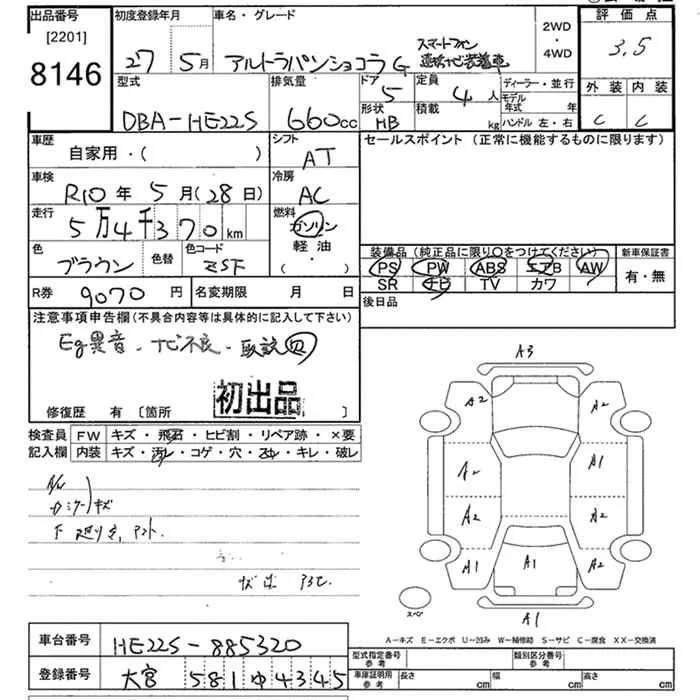 出品番号
[2201]
8146
初度登録年月
27年5月
車名・グレード
アルトラパンショコラG
スマートフォン
連携ナビ装着車
2WD
・
4WD
評価点
3.5
外装 内装
C C
型式
DBA-HE22S
排気量
660cc
ドア
5
形状
HB
定員
4人
積載
kg
ディーラー・並行
モデル年式 年
ハンドル 左・右
車歴
自家用・( )
シフト
AT
セールスポイント(正常に機能するものに限ります)
車検
R10年5月(28日)
冷房
AC
走行
5万4千370km
燃料
ガソリン
軽油
・( )
色
ブラウン
色替
色コード
ZSF
装備品(純正品に限り○をつけてください)
PS PW ABS エアB AW
SR ナビ TV カワ
新車保証書
有・無
R券 9070円
名変期限 月 日
後日品
注意事項申告欄(不具合内容等は具体的に記入して下さい)
Eg異音・ナビ不良・取説
初出品
修復歴 有 [箇所 ]
検査員
記入欄
FW キズ・飛石・ヒビ割・リペア跡・×要
内装 キズ・汚レ・コゲ・穴・スレ・キレ・破レ
A/W
ドミラー キズ
下廻りキ,
A3
A2 A2
A2 A1
A2 A2
A1 A1 A2
スペア
A1
A-キズ E-エクボ U-凹み W-補修跡 S-サビ C-腐食 XX-交換済
車台番号 HE22S-885320
登録番号 大宮 581ゆ4345
型式指定番号
参考
類別区分番号
参考
車庫証明用
参考
長さ cm 幅 cm 高さ cm